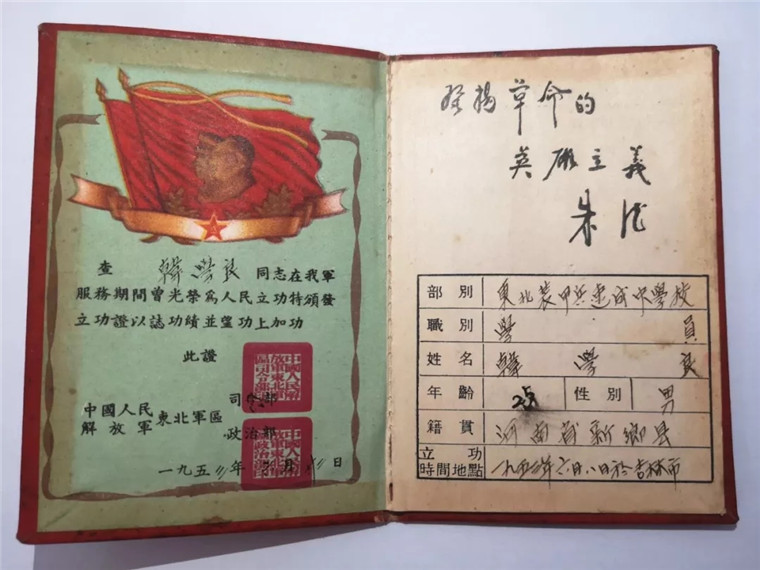 查 韓學良 同志在我軍
服務期間曾光榮爲人民立功特頒發
立功證以誌功績並望功上加功
此證
中國人民
解放軍
東北軍區
司令部
政治部
一九五 年 月 日
發揚革命的
英雄主義
朱德
部別 東北裝甲兵速成中學校
職別 學員
姓名 韓學良
年齡 性別 男
籍貫 河南省新鄉县
立功
時間地點 一九五 年六月八日於吉林市